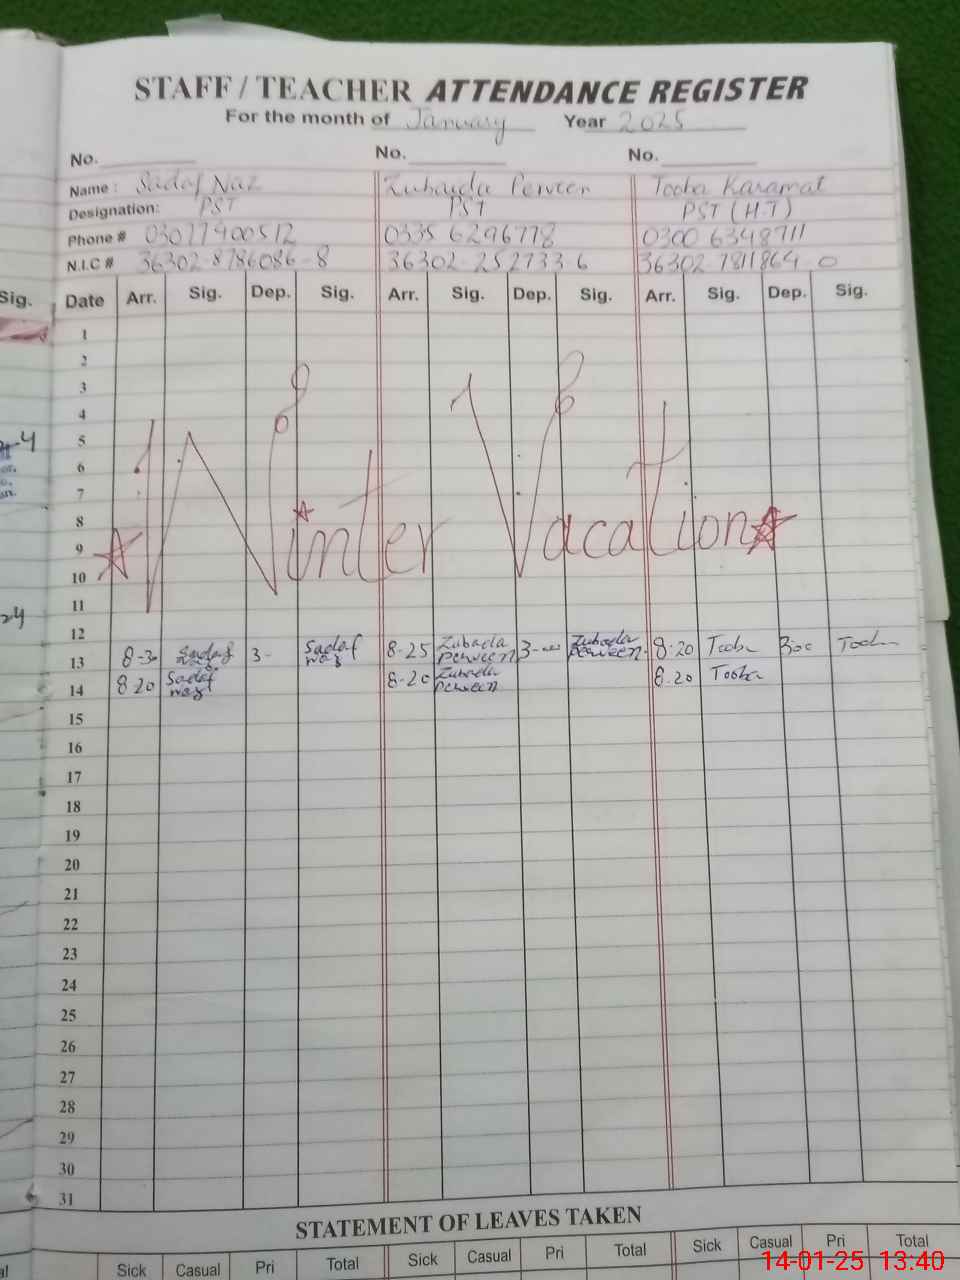 STAFF / TEACHER ATTENDANCE REGISTER
For the month of January Year 2025
No. No. No.
Name : Sadaf Naz Zubaida Perveen Tooba Karamat
Designation: PST PST PST (H.T)
Phone # 03077400512 0335 6296778 0300 6348711
N.I.C # 36302-8786086-8 36302-252733 6 36302-7811864-0
Sig. Date Arr. Sig. Dep. Sig. Arr. Sig. Dep. Sig. Arr. Sig. Dep. Sig.
1
2
3
4
5
6
7
8
Winter Vacation
9
10
11
12
13 8-30 Sadaf Naz 3- Sadaf Naz 8-25 Zubada Perveen 3-00 Zubada Perveen 8:20 Tooba 3:00 Tooba
14 8-20 Sadaf Naz 8-20 Zubada Perveen 8-20 Tooba
15
16
17
18
19
20
21
22
23
24
25
26
27
28
29
30
31
STATEMENT OF LEAVES TAKEN
Sick Casual Pri Total Sick Casual Pri Total Sick Casual Pri Total
14-01-25 13:40